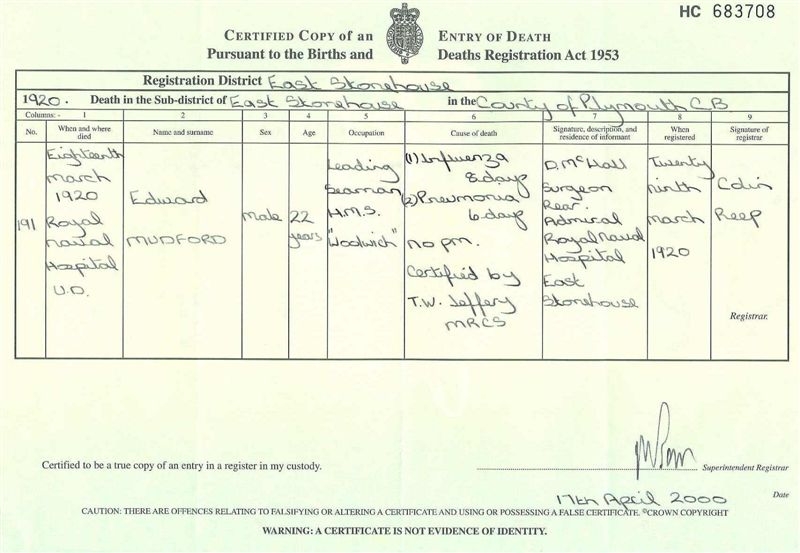 HC 683708
CERTIFIED COPY of an ENTRY OF DEATH
Pursuant to the Births and Deaths Registration Act 1953
Registration District East Stonehouse
1920. Death in the Sub-district of East Stonehouse in the County of Plymouth CB
Columns:- 1 2 3 4 5 6 7 8 9
No. When and where died Name and surname Sex Age Occupation Cause of death Signature, description, and residence of informant When registered Signature of registrar
191
Eighteenth
March
1920
Royal
Naval
Hospital
U.D.
Edward
MUDFORD
Male
22
years
Leading
Seaman
H.M.S.
"Woolwich"
(1) Influenza
8 days
(2) Pneumonia
6 days
no pm.
Certified by
T.W. Jeffery
MRCS
D. McHall
Surgeon
Rear.
Admiral
Royal Naval
Hospital
East
Stonehouse
Twenty
ninth
March
1920
Colin
Reep
Registrar.
Certified to be a true copy of an entry in a register in my custody.
Superintendent Registrar
17th April 2000 Date
CAUTION: THERE ARE OFFENCES RELATING TO FALSIFYING OR ALTERING A CERTIFICATE AND USING OR POSSESSING A FALSE CERTIFICATE. ©CROWN COPYRIGHT
WARNING: A CERTIFICATE IS NOT EVIDENCE OF IDENTITY.